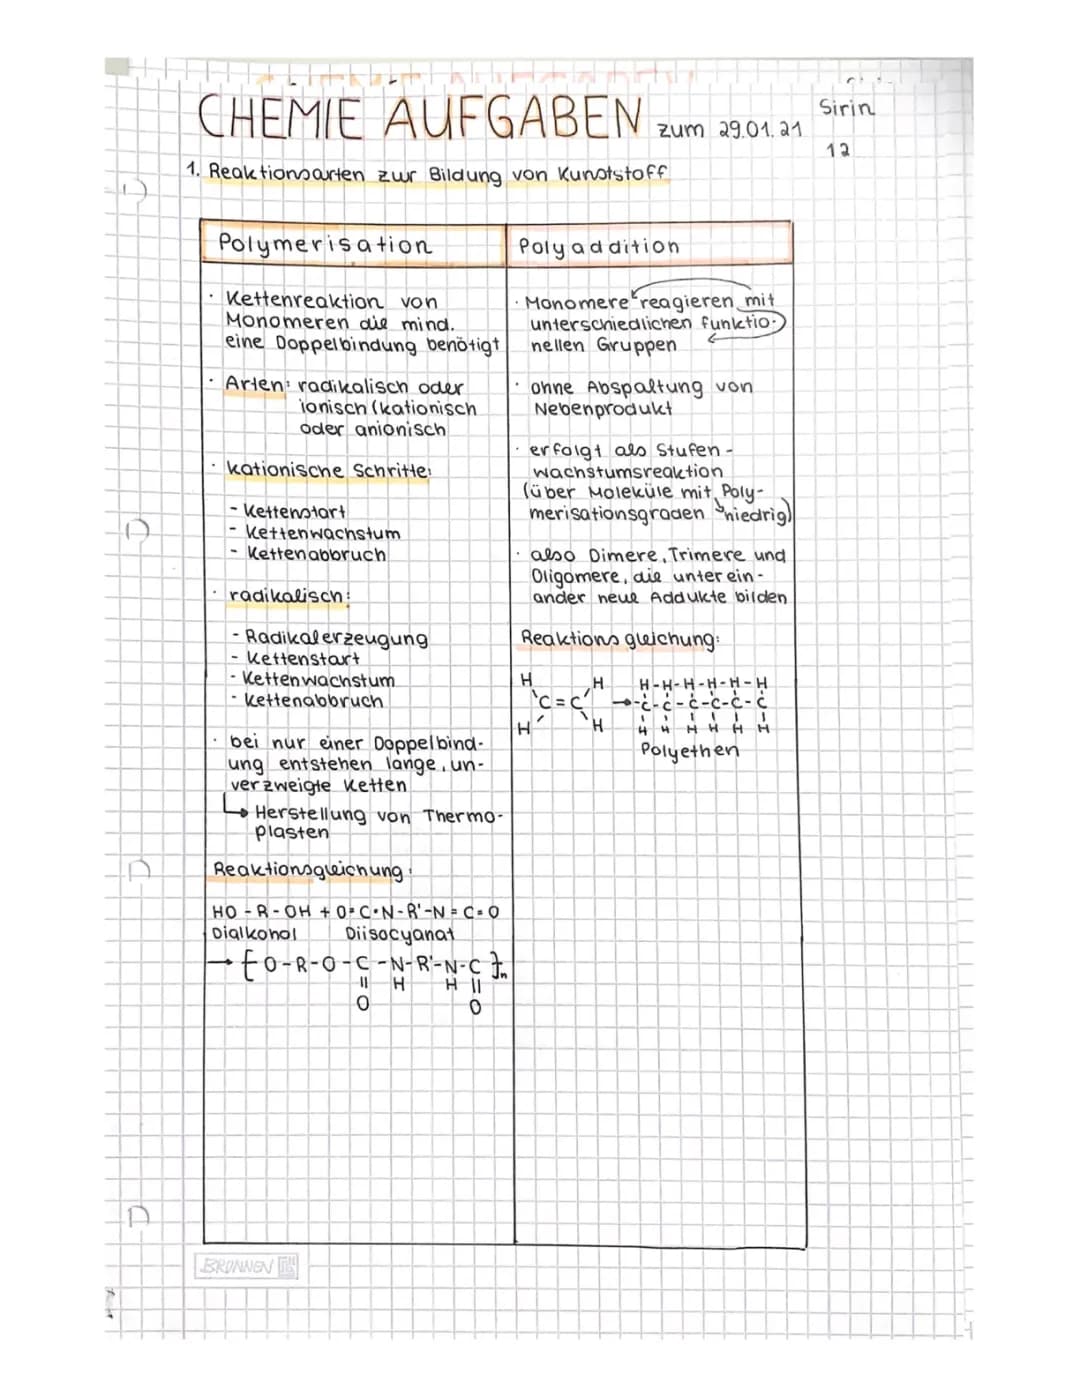 CHEMIE AUFGABEN zum 29.01.21
Sirin
12
1. Reaktionsarten zur Bildung von Kunststoff
Polymerisation
· Kettenreaktion von
Monomeren die mind.
eine Doppelbindung benötigt
· Arten: radikalisch oder
ionisch (kationisch
oder anionisch
· kationische Schritte:
- Kettenstart
- Kettenwachstum
- Kettenabbruch
· radikalisch:
- Radikalerzeugung
- Kettenstart
- Kettenwachstum
- Kettenabbruch
· bei nur einer Doppelbind-
ung entstehen lange, un-
verzweigte Ketten
↳ Herstellung von Thermo-
plasten
Reaktionsgleichung:
HO - R - OH + O=C=N-R'-N=C=O
Dialkohol Diisocyanat
→ [O-R-O-C-N-R'-N-C]n
|| H H ||
O O
Polyaddition
· Monomere reagieren mit
unterschiedlichen funktio-
nellen Gruppen
· ohne Abspaltung von
Nebenprodukt
· erfolgt als Stufen-
wachstumsreaktion
(über Moleküle mit Poly-
merisationsgraden niedrig)
· also Dimere, Trimere und
Oligomere, die unterein-
ander neue Addukte bilden
Reaktionsgleichung:
H H H-H-H-H-H-H
C=C → -C-C-C-C-C-C
H H H H H H H H
Polyethen
BRUNNEN